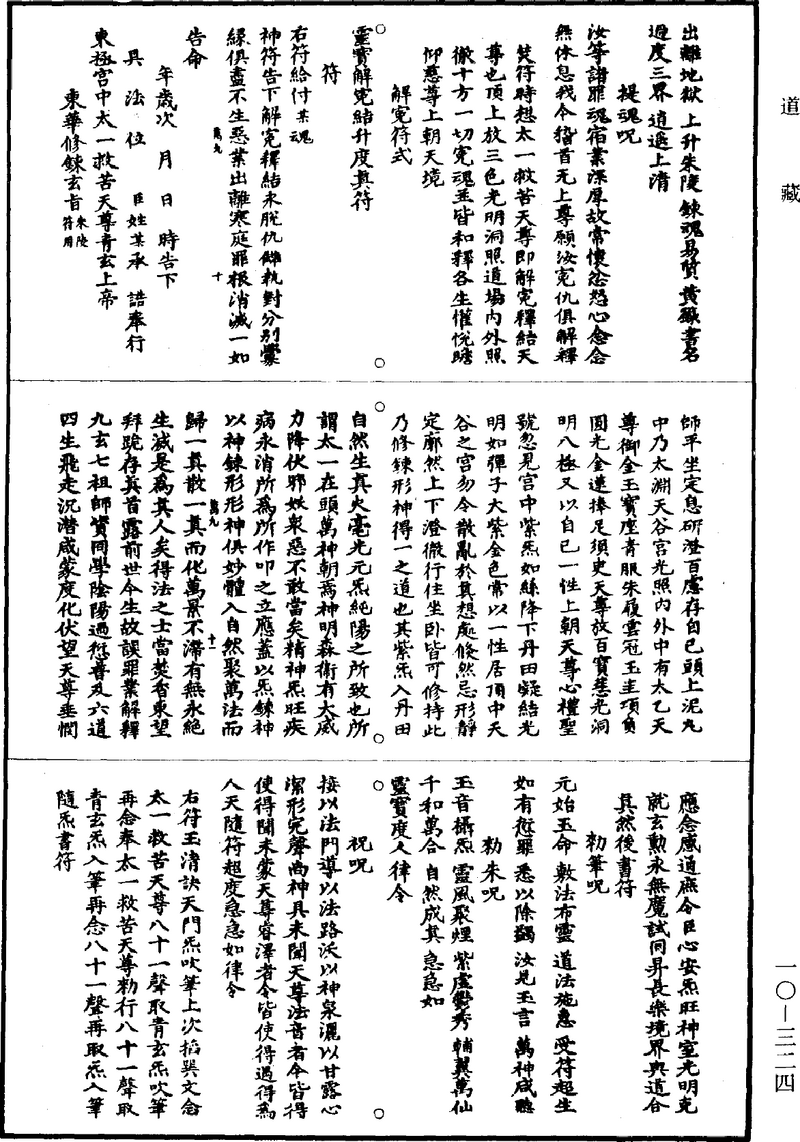 道藏
出離地獄上升朱陵鍊魂易質黃籙書名
過度三界逍遙上清
提魂呪
汝等諸罪魂宿業深厚故常懷忿怒心念念
無休息我今稽首无上尊願汝冤仇俱解釋
焚符時想太一救苦天尊即解冤釋結天
尊也頂上放三色光明洞照道場內外照
徹十方一切冤魂並皆和釋各生懽悅瞻
仰慈尊上朝天境
解冤符式
靈寶解冤結升度真符
符
右符給付某魂
神符告下解冤釋結未脫仇讎執對分別釁
緣俱盡不生惡業出離寒庭罪根消滅一如
萬九 十
告命
年歲次 月 日 時告下
具法位 臣姓某承 誥奉行
東極宮中太一救苦天尊青玄上帝
東華修鍊玄旨朱陵符用
師平坐定息研澄百慮存自己頭上泥丸
中乃太淵天谷宮光照內外中有太乙天
尊御金玉寶座青服朱履雲冠玉圭項負
圓光金蓮捧足須臾天尊放百寶慈光洞
明八極又以自己一性上朝天尊心禮聖
號忽見宮中紫炁如絲降下丹田凝結光
明如彈子大紫金色常以一性居頂中天
谷之宮勿令散亂於真想處倏然忘形靜
定廓然上下澄徹行住坐臥皆可修持此
乃修鍊形神得一之道也其紫炁入丹田
自然生真火毫光元炁純陽之所致也所
謂太一在頭萬神朝焉神明森衛有大威
力降伏邪妖衆惡不敢當矣精神炁旺疾
病永消所為所作叩之立應蓋以炁鍊神
以神鍊形形神俱妙體入自然聚萬法而
萬九 十一
歸一真散一真而化萬景不滯有無永絕
生滅是為真人矣得法之士當焚香東望
拜跪存真首露前世今生故誤罪業解釋
九玄七祖師資同學陰陽過愆普及六道
四生飛走沉潛咸蒙度化伏望天尊垂憫
應念感通庶令臣心安炁旺神室光明克
就玄勲永無魔試同昇長樂境界與道合
真然後書符
勑筆呪
元始玉命敷法布靈道法施惠受符起生
如有愆罪悉以除蠲汝見玉言萬神咸聽
勑朱呪
玉音攝炁靈風聚煙紫虛鬱秀輔翼萬仙
千和萬合自然成真急急如
靈寶度人律令
祝呪
接以法門導以法路沃以神泉灑以甘露心
潔形完聲尚神具未聞天尊法音者今皆得
使得聞未蒙天尊睿澤者令皆使得遇得為
人天隨符超度急急如律令
右符玉清訣天門炁吹筆上次掐巽文念
太一救苦天尊八十一聲取青玄炁吹筆
再念奉太一救苦天尊勑行八十一聲取
青玄炁入筆再念八十一聲再取炁入筆
隨炁書符
一〇—三二四